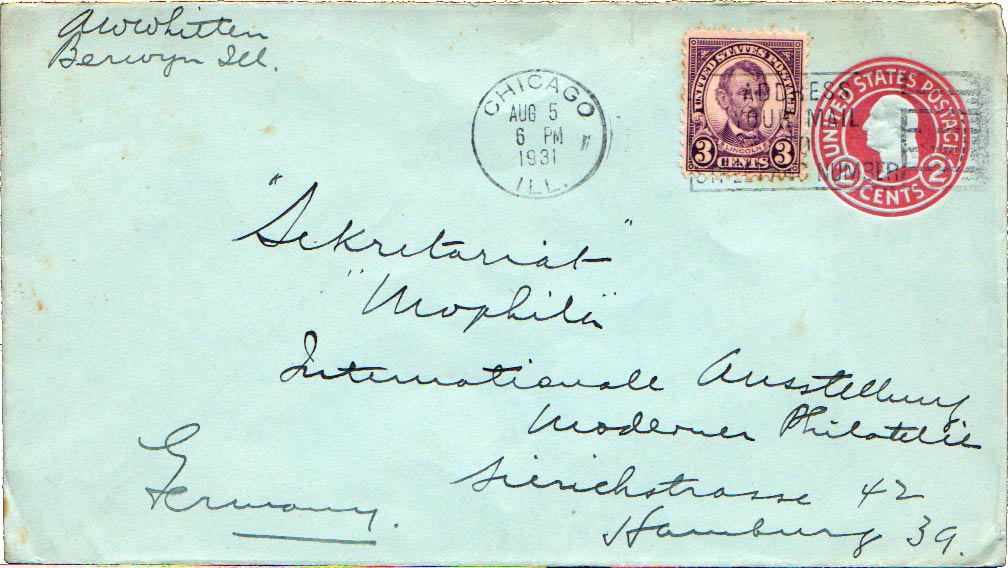 AWWhitten
Berwyn Ill.
CHICAGO
AUG 5
6 PM
1931
ILL.
UNITED STATES POSTAGE
LINCOLN
3 CENTS 3
ADDRESS
YOUR MAIL
TO
STREET AND NUMBER
UNITED STATES POSTAGE
2 CENTS 2
"Sekretariat"
"Mophila"
Internationale Ausstellung
Moderner Philatelie
Sierichstrasse 42
Hamburg 39.
Germany.